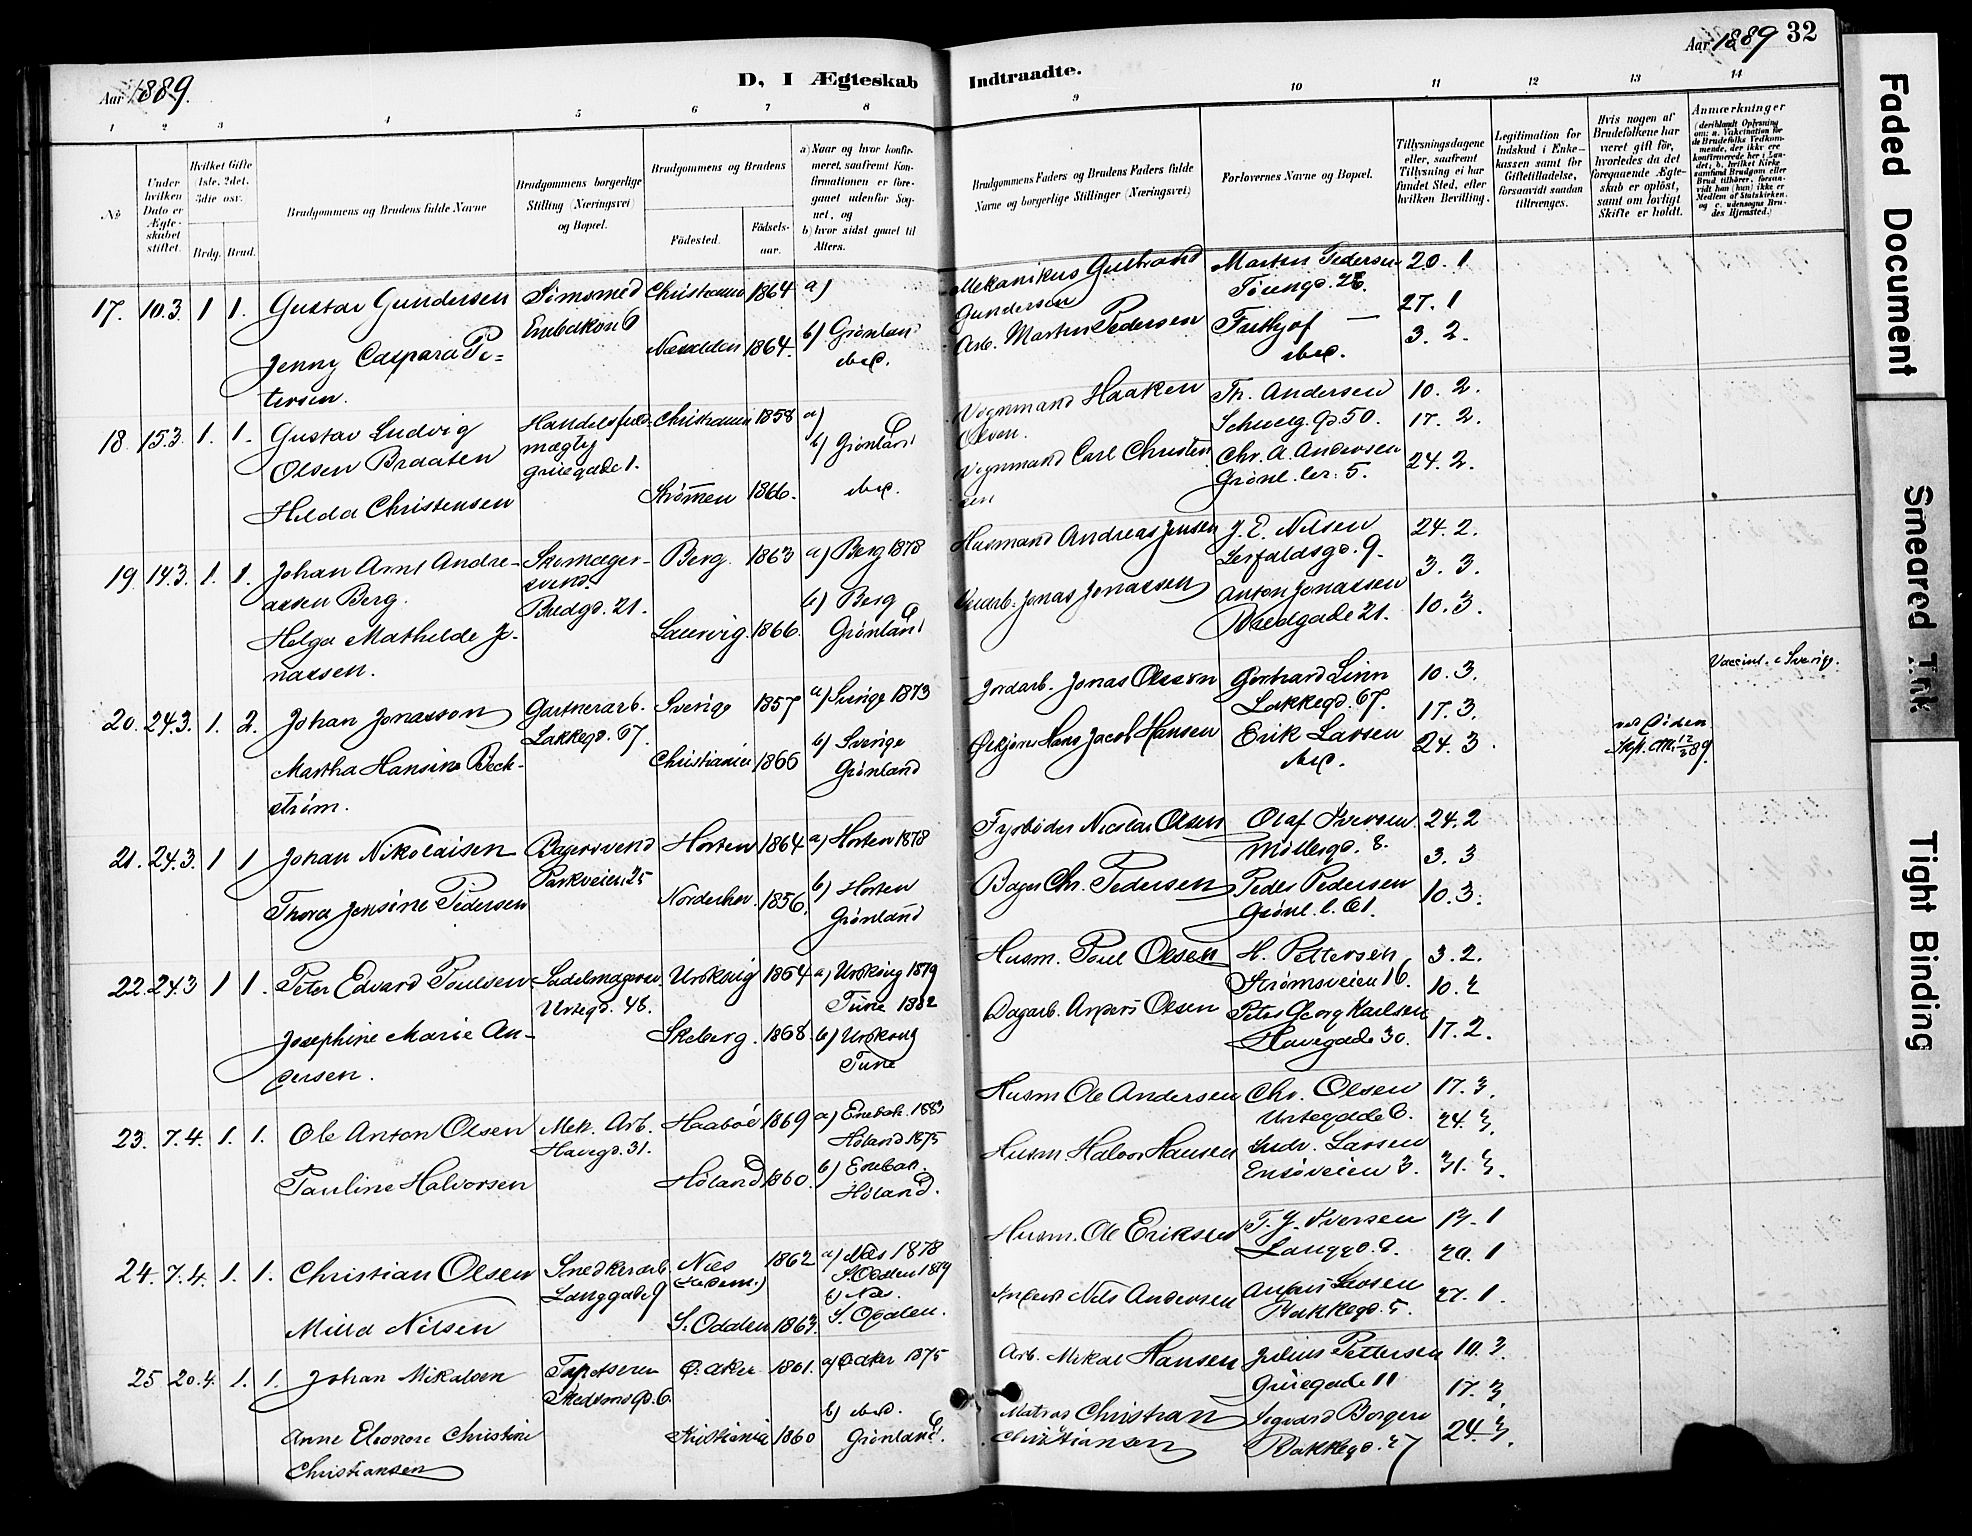 Aar 1889.
D, I Ægteskab
Indtraadte.
Aar 1889 32
1 2 3 4 5 6 7 8
9 10 11 12 13 14
No
Under hvilken Dato er Ægteskabet stiftet.
Hvilket Gifte 1ste, 2det, 3die osv.
Brdg. Brud.
Brudgommens og Brudens fulde Navne
Brudgommens borgerlige Stilling (Næringsvei) og Bopæl.
Brudgommens og Brudens
Födested.
Födselsaar.
a) Naar og hvor konfirmeret, saafremt Konfirmationen er foregaaet udenfor Sognet, og
b) hvor sidst gaaet til Alters.
Brudgommens Faders og Brudens Faders fulde Navne og borgerlige Stillinger (Næringsvei)
Forlovernes Navne og Bopæl.
Tillysningsdagene eller, saafremt Tillysning ei har fundet Sted, efter hvilken Bevilling.
Legitimation for Indskud i Enkekassen samt for Giftetilladelse, forsaavidt saadan tiltrænges.
Hvis nogen af Brudefolkene har været gift för, hvorledes da det foregaaende Ægteskab er oplöst, samt om lovligt Skifte er holdt.
Anmærkninger
17. 10.3. 1 1. Gustav Gundersen
Jenny Caspara Petersen.
Christiania 1864 a)
1864. b) Grønland
Mekanikus Gulbrand Gundersen
Arb. Martin Pedersen
Martin Pedersen
20. 1
27. 1
3. 2.
18. 15.3. 1. 1. Gustav Ludvig
Olsen Braaten
Hilda Christensen
Christiania 1858 a)
b) Grønland
Strømmen 1866.
Vognmand Haaken Olsen.
Vognmand Carl Christensen
Th. Andersen
Schweg. gd 50.
Chr. A. Andersen
Grønl. ler: 5.
10. 2.
17. 2.
24. 2.
19 14.3. 1. 1. Johan Arnt Andreassen Berg.
Helga Mathilde Jonassen.
Skomagersvend
Bredgd. 21.
Berg. 1863 a) Berg 1878
b) Berg
Laurvig. 1866. Grønland
Husmand Andreas Jensen
Jonas Jonassen
J. E. Nilsen
9.
Anton Jonassen
Bredgade 21.
24. 2.
3. 3.
10. 3.
20. 24.3. 1. 2. Johan Jonasson
Martha Hansine Beckstrøm.
Gartnerarb.
Lakkegd. 67.
Sverige 1857 a) Sverige 1873
b) Sverige
Christiania 1866 Grønland
Jordarb. Jonas Olsson
Hans Jacob Hansen
Gerhard Linn
Lakkegd. 67.
Erik Larsen
10. 3.
17. 3.
24. 3.
ved Döden
Vaccinl. i Sverige.
21. 24.3. 1 1 Johan Nikolaisen
Thora Jensine Pedersen
Bagersvend
Parkveien 25
Horten 1864 a) Horten 1878
b) Horten
Norderhov. 1856. Grønland
Fyrbøder Nicolai Olsen
Bager Chr. Pedersen
Olaf Iversen
Møllergd. 8.
Peder Pedersen
Grønl. l. 61.
24. 2
3. 3
10. 3.
22. 24.3 1 1. Peter Edvard Poulsen
Josephine Marie Andersen.
Sadelmagersv.
Urtegd. 48.
Urskoug 1864 a) Urskoug 1879
Tune 1882
Skeberg. 1868. b) Urskoug
Tune
Husm. Poul Olsen
Dagarb. Anders Olsen
H. Pettersen
Strømsveien 16.
Peter Georg Karlsen
Havegade 30.
3. 2.
10. 2
17. 2.
23. 7.4. 1. 1. Ole Anton Olsen
Pauline Halvorsen
Mek. Arb.
Havegd. 31.
Haabøl 1869 a) Enebak. 1883
Høland 1875
Høland 1860. b) Enebak.
Høland.
Husm Ole Andersen
Husm. Halvor Hansen
Chr. Olsen
Urtegade 6.
Andr. Larsen
Ensøveien 3.
17. 3.
24. 3.
31. 3.
24. 7.4. 1. 1. Christian Olsen
Milla Nilsen
Snedkerarb.
Langgade 9
Næs 1862 a) Næs 1878
S. Odalen 1879
b) Næs.
S. Odalen 1863. S. Odalen.
Husm. Ole Eriksen
Nils Andersen
T. J. Iversen
Langgd. 9.
Anders Larsen
Bakkegd. 5.
13. 1
20. 1
27. 1.
25 20.4. 1. 1. Johan Mikalsen
Anne Eleonore Christine
Christiansen
Tapetserer
Ø. Aker 1861. a) Ø. Aker 1875
Kristiania 1860 Grønland.
Arb. Mikal Hansen
Matros Christian Christiansen
Julius Pettersen
Gruegade 11
Sigvard Borgers
Bakkegd. 27
10. 3.
17. 3.
24. 3.
Faded Document
Smeared Ink
Tight Binding